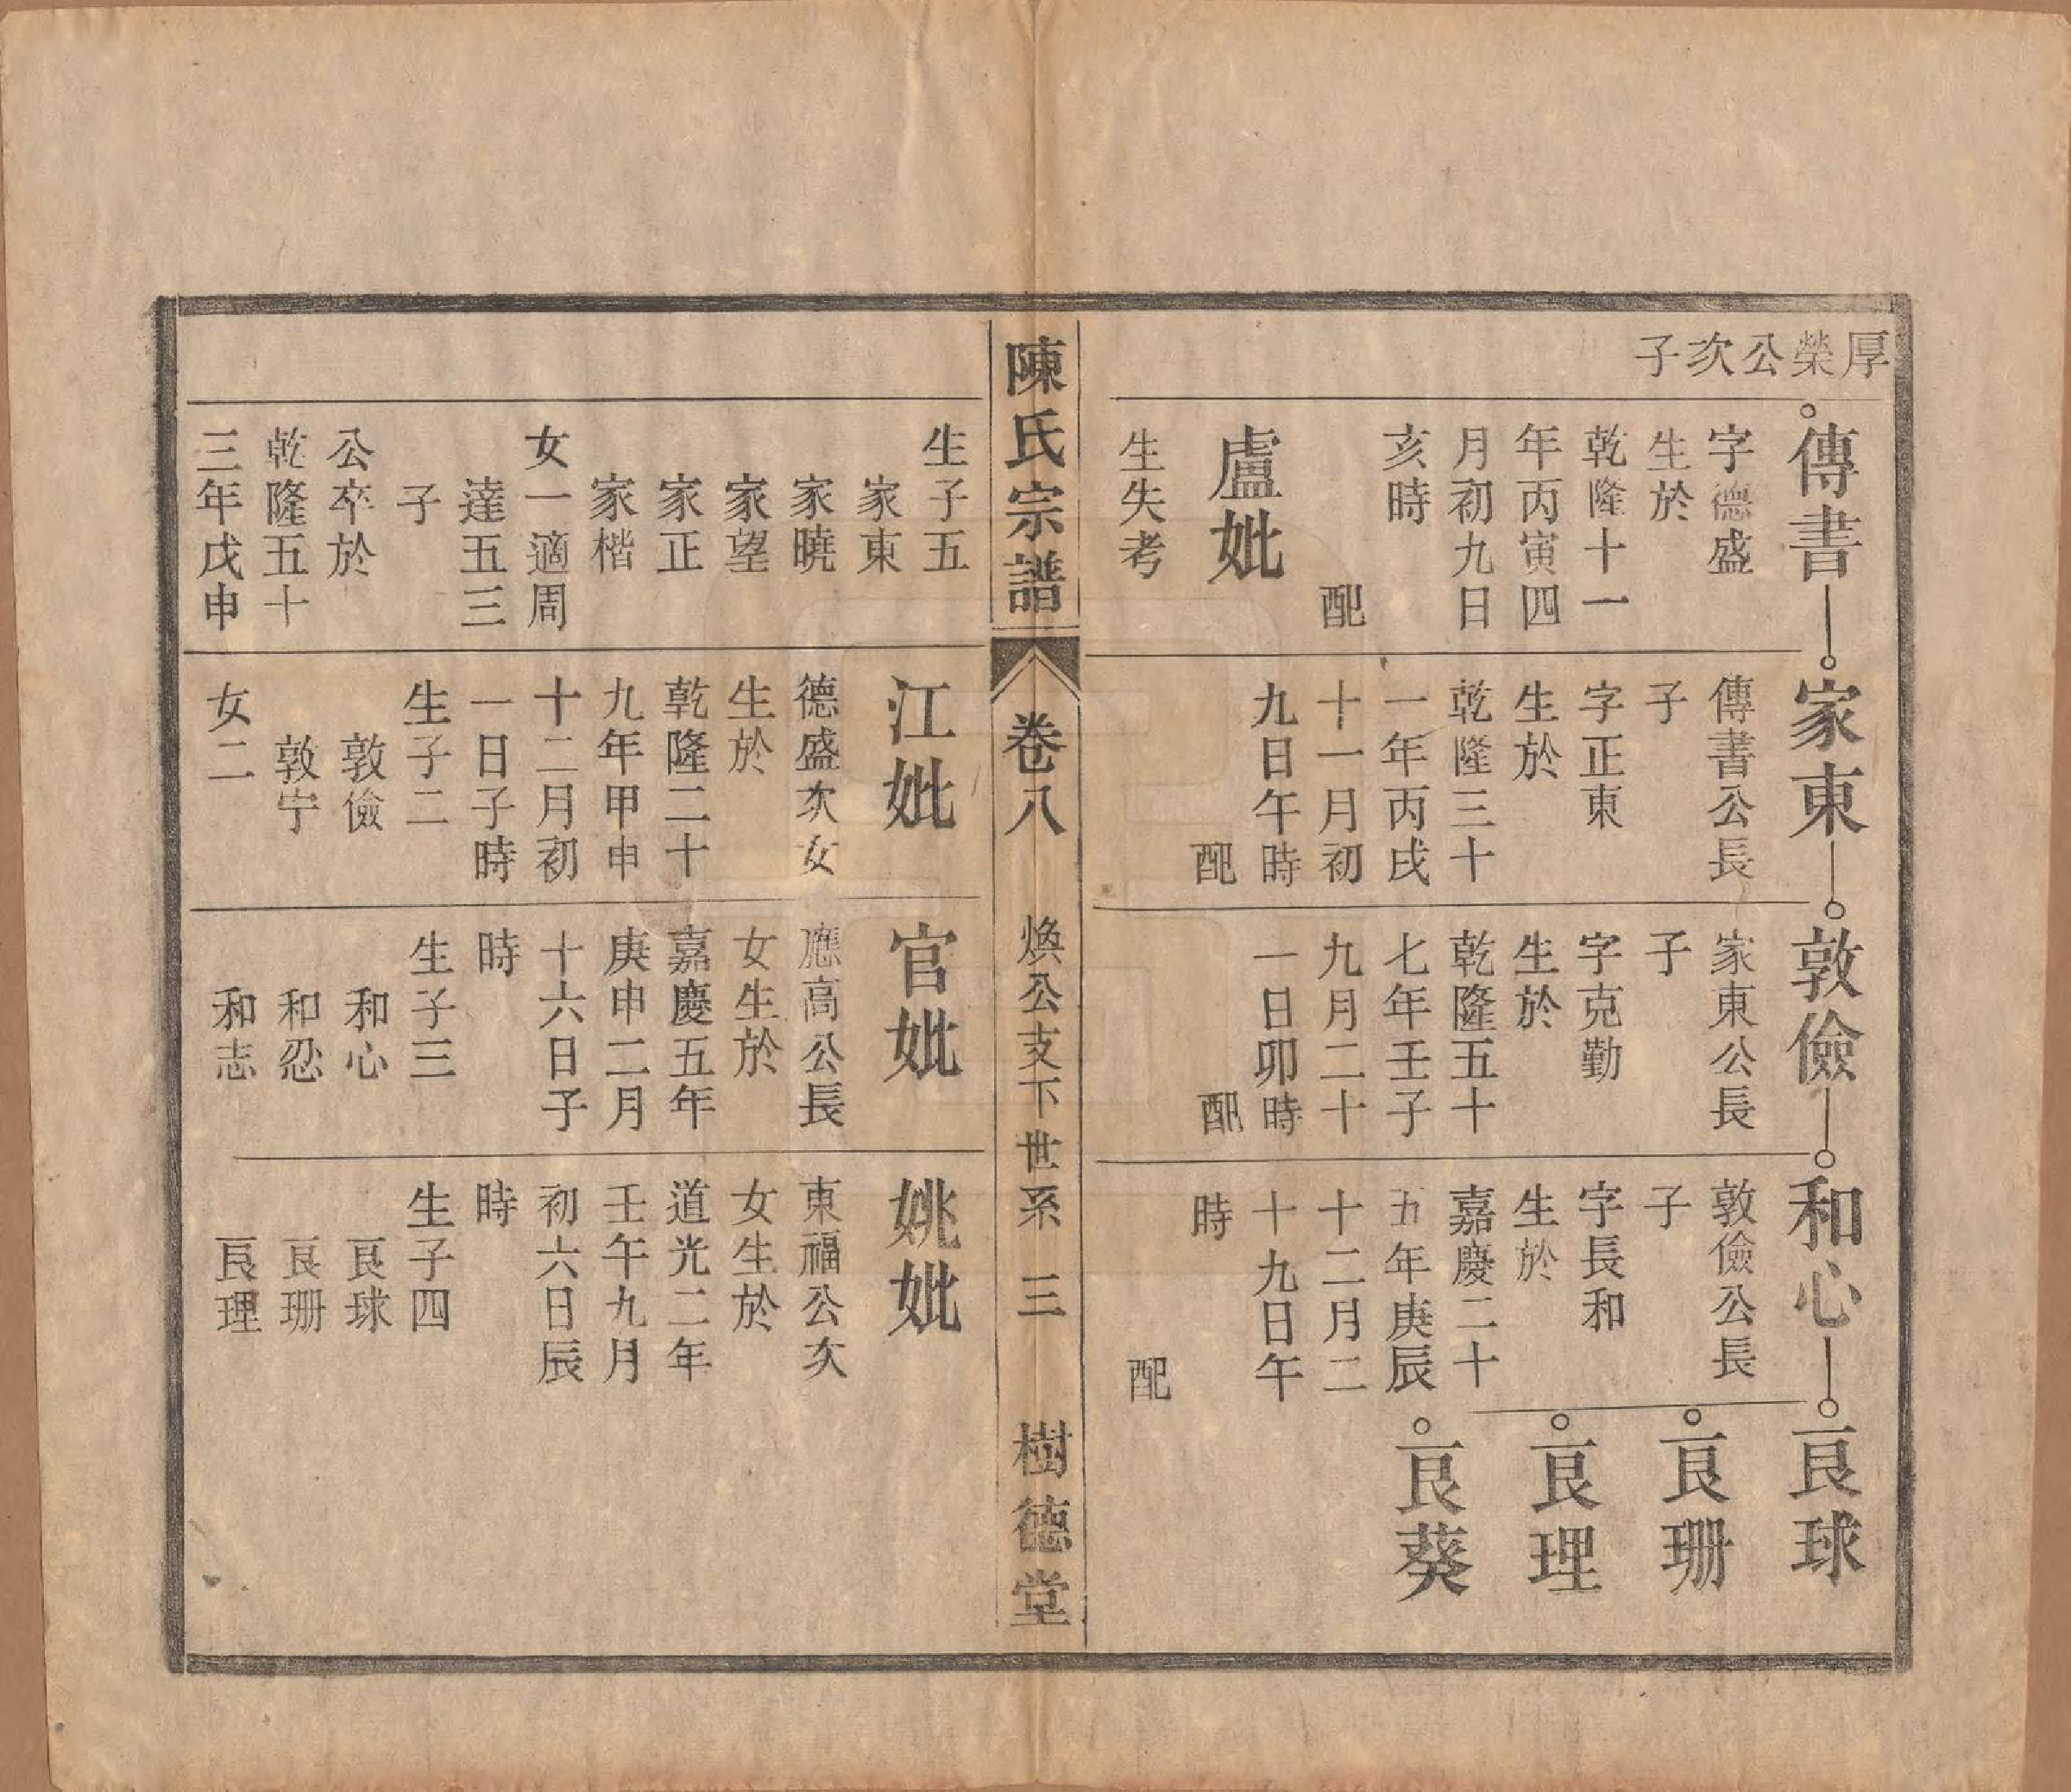 厚榮公次子
傳書
字德盛
生於
乾隆十一
年丙寅四
月初九日
亥時
配
盧妣
生失考
家東
傳書公長
子
字正東
生於
乾隆三十
一年丙戌
十一月初
九日午時
配
敦儉
家東公長
子
字克勤
生於
乾隆五十
七年壬子
九月二十
一日卯時
配
和心
敦儉公長
子
字長和
生於
嘉慶二十
五年庚辰
十二月二
十九日午
時
配
良球
良珊
良理
良葵
陳氏宗譜
卷八
煥公支下世系
三
樹德堂
生子五
家東
家曉
家望
家正
家楷
女一適周
達五三
子
公卒於
乾隆五十
三年戊申
江妣
德盛次女
生於
乾隆二十
九年甲申
十二月初
一日子時
生子二
敦儉
敦宁
女二
官妣
應高公長
女生於
嘉慶五年
庚申二月
十六日子
時
生子三
和心
和忍
和志
姚妣
東福公次
女生於
道光二年
壬午九月
初六日辰
時
生子四
良球
良珊
良理